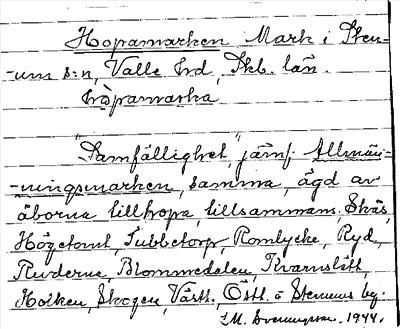 Hopamarken Mark i Sten-
-ums s:n, Valle hrd, Skb. län.
hòpamarka
"Samfällighet" jämf. Allmän-
-ningsmarken, samma, ägd av
åborna tillhopa, tillsammans, Skås,
Högetomt, Tubbetorp, Romlycke, Ryd,
Ruderna, Blommedalen, Kvarnslätt,
Holken, Skogen, Västl. Östl. o Stenums by.
I.M. 1944.